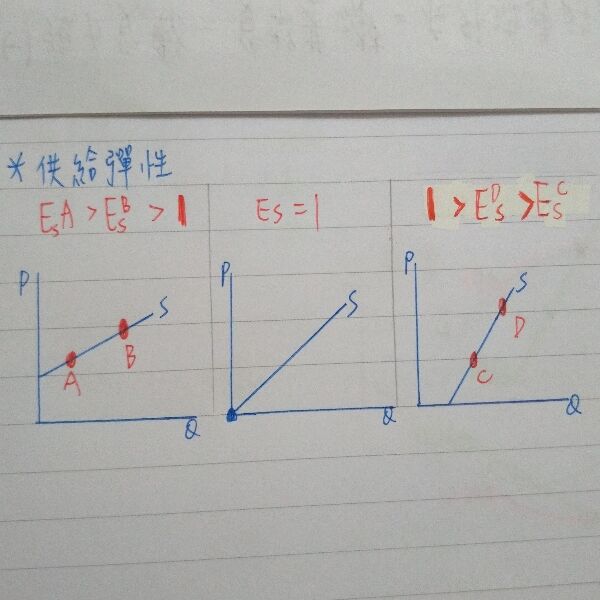 *供給彈性
EsA > EsB > 1
Es = 1
1 > EsD > EsC
P
S
A
B
Q
P
S
Q
P
S
D
C
Q